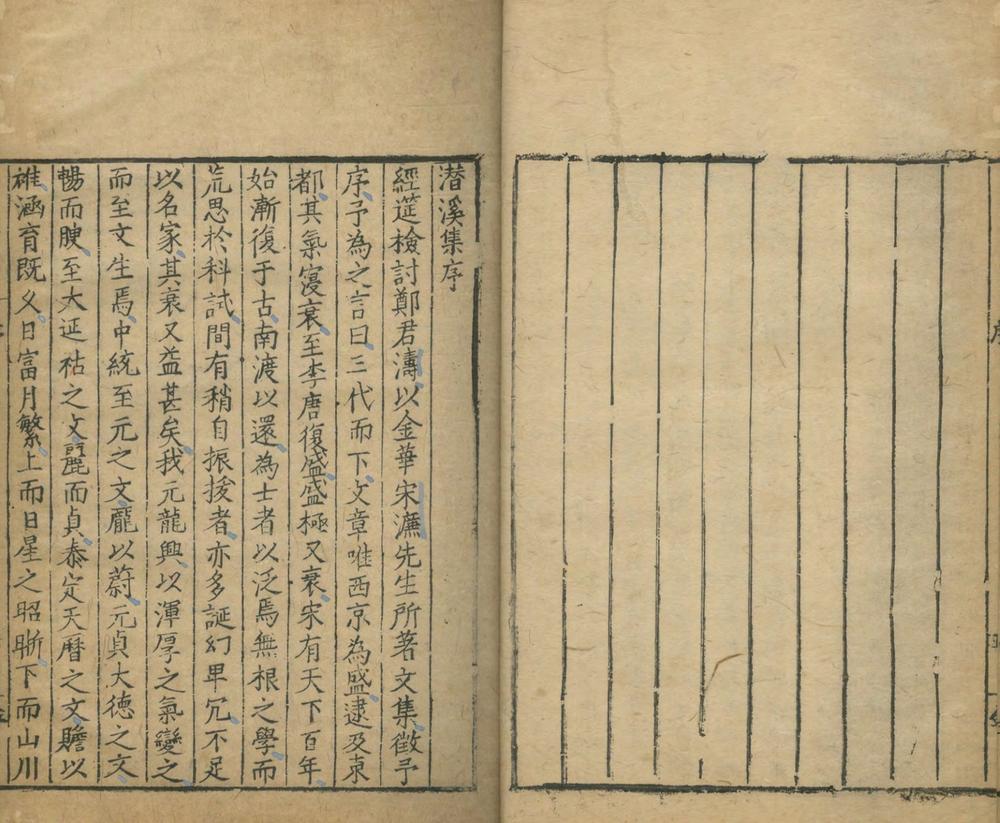 潜溪集序
經筵檢討鄭君濤以金華宋濂先生所著文集徵予
序予為之言曰三代而下文章唯西京為盛逮及東
都其氣寖衰至李唐復盛盛極又衰宋有天下百年
始漸復于古南渡以還為士者以泛焉無根之學而
荒思於科試間有稍自振拔者亦多誕幻卑冗不足
以名家其衰又益甚矣我元龍興以渾厚之氣變之
而至文生焉中統至元之文龐以蔚元貞大德之文
暢而腴至大延祐之文麗而貞泰定天曆之文贍以
雄涵育既久日富月繁上而日星之昭晣下而山川